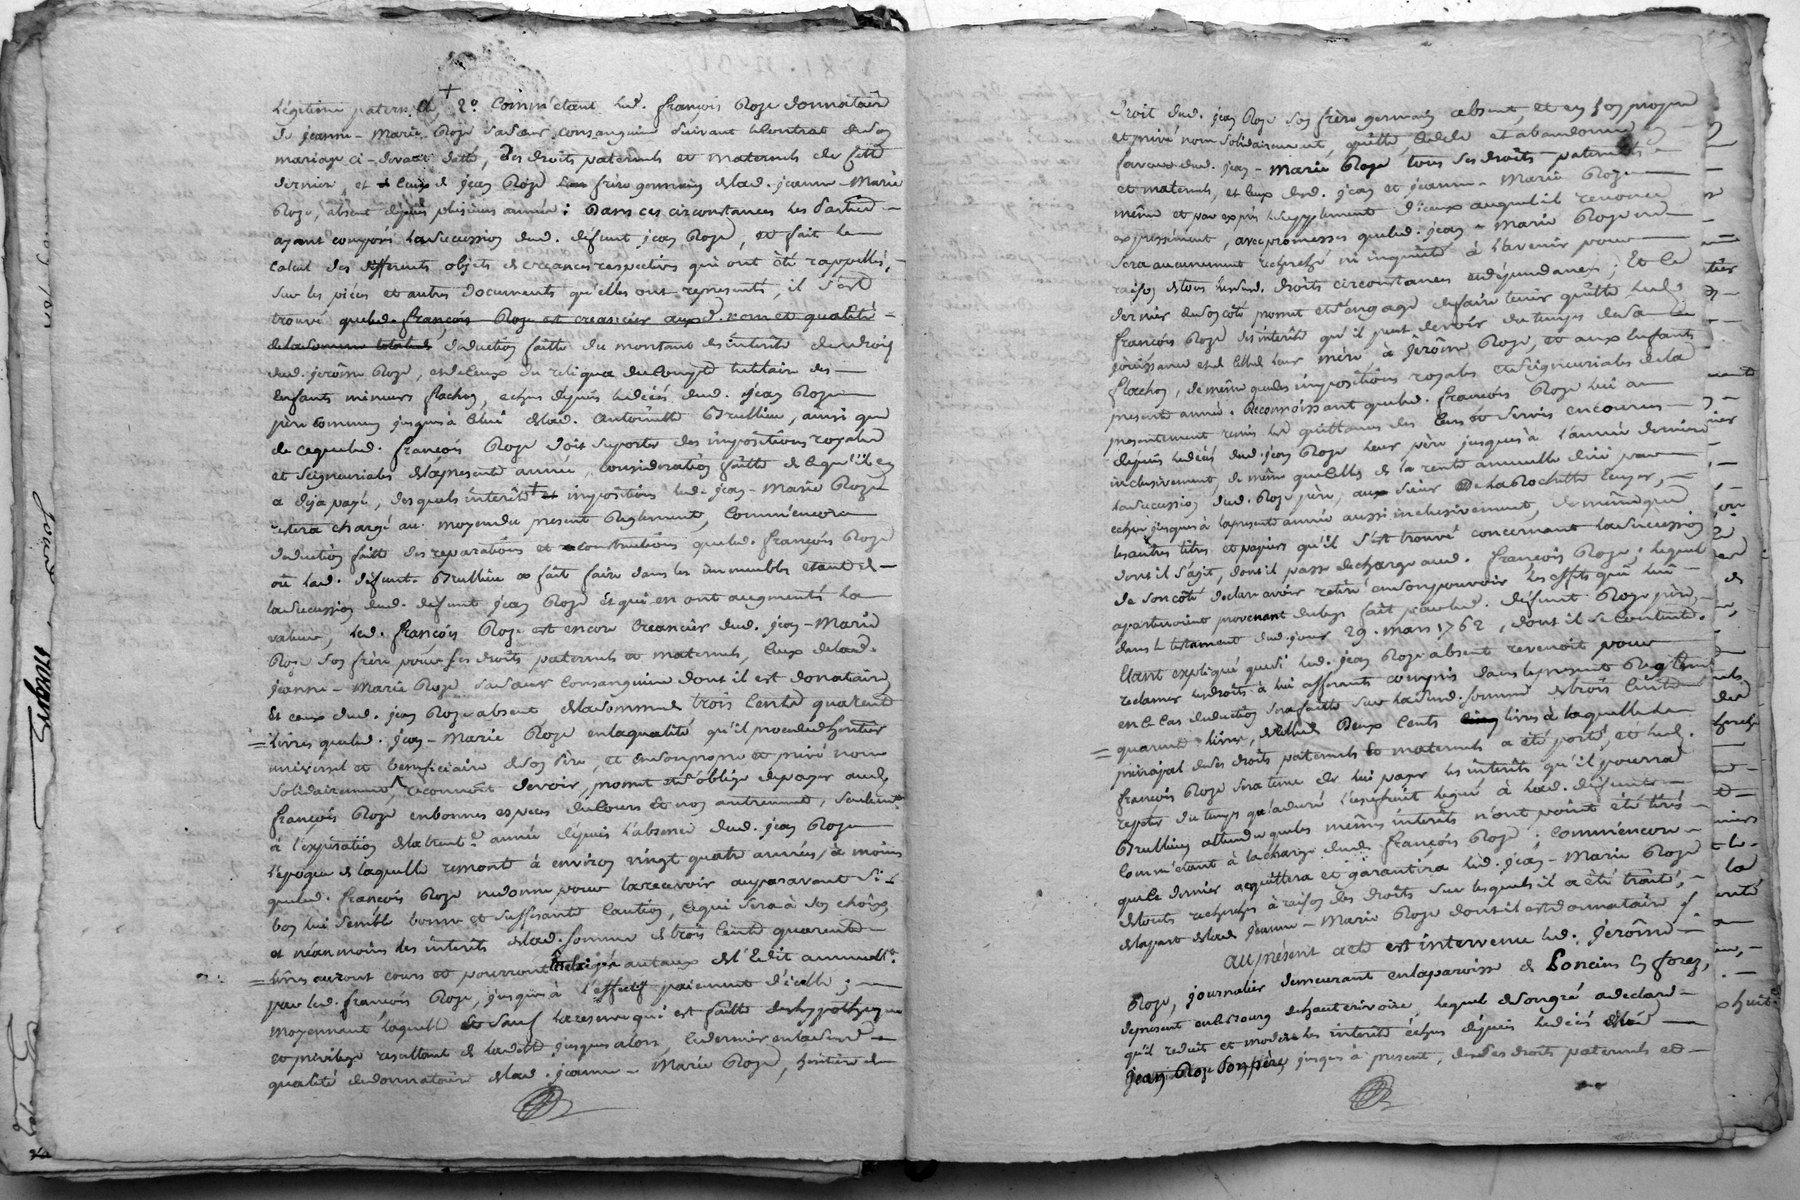 Légitime patern. et + 2.° Comm'étant led. françois Roze donnataire
de jeanne-Marie Roze sa sœur consanguine suivant le Contrat de son
mariage ci-devant datté, des droits paternels et maternels de cette
dernier, et de Ceux de jean Roze son frère germain de lad. jeanne-Marie
Roze, absent depuis plusieurs années: Dans ces circonstances les Parties
ayant composé la succession dud. défunt jean Roze, et fait le
calcul des différents objets et créances respectives qui ont été rappellés,
sur les pièces et autres documents qu'elles ont représentés, il s'est
trouvé que led. françois Roze est creancier aux d. nom et qualité
de la somme totale de déduction faitte du montant des intérêts des droits
dud. jerôme Roze, et de Ceux du reliqua du Compte tutélaire des
Enfants mineurs flachon, echus depuis le décès dud. jean Roze
père commun jusques à Celui de lad. Antoinette Brullieu, ainsi que
de ce que led. françois Roze doit suporter des impositions royales
et seigneuriales de la présente année, considération faitte de ce qu'il en
a déjà payé, desquels intérêts + et impositions led. jean-Marie Roze
restera chargé au moyen du présent Reglement, Comm'encore
déduction faitte des réparations et constructions que led. françois Roze
où lad. défunte Brullieu a fait faire dans les immeubles étant de
la succession dud. défunt jean Roze et qui en ont augmenté la
valeur, led. françois Roze est encore Créancier dud. jean-Marie
Roze son frère pour ses droits paternels et maternels, Ceux de lad.
jeanne-Marie Roze sa sœur Consanguine dont il est donnataire
Et ceux dud. jean Roze absent de la somme de trois Cents quarente
livres que led. jean-Marie Roze en la qualité qu'il procède d'héritier
universel et bénéficiaire de son père, et en son propre et privé nom
solidairement, reconnoit devoir, promet et s'oblige de payer aud.
françois Roze en bonnes espèces du Cours Et non autrement, seulemt.
à l'expiration de la trent.e année depuis l'absence dud. jean Roze
l'époque de laquelle remont à environ vingt quatre années, à moins
que led. françois Roze ne donne pour la recevoir auparavant si
bon lui semble bonne et suffisante Caution, ce qui sera à son choix
et néanmoins les intérêts de lad. somme de trois Cents quarente
livres auront cours et pourront au taux de l'Edit annuellt.
par led. françois Roze, jusques à l'effectif paiement d'icelle;
moyennant laquelle Et sauf la réserve qui est faitte des hypothèques
et privilège résultants de lad. dette jusques alors, ce dernier en lad.
qualité de donnataire de lad. jeanne-Marie Roze, héritier de
droit dud. jean Roze son frère germain absent, et en son propre
et privé nom solidairement, quitte, Cède et abandonne en
faveur dud. jean-Marie Roze tous ses droits paternels
et maternels, et Ceux desd. jean et jeanne-Marie Roze
même et par exprès le supplément d'iceux auquel il renonce
expressément, avec promesses que led. jean-Marie Roze ne
sera aucunement recherché ni inquiété à l'avenir pour
raison de tous lesd. droits circonstances et dépendances; Et Ce
dernier de son côté promet et s'engage de faire tenir quitte led.
françois Roze des intérêts qu'il peut devoir du temps de sa
jouissance et de Celle de leur mère à jerôme Roze, et aux Enfants
flachon, de même que des impositions royales et seigneuriales de la
presente année. Reconnoissant que led. françois Roze lui a
presentement remis les quittances des Cens et servis encourus
depuis le décès dud. jean Roze leur père jusques à l'année dernière
inclusivement, de même que Celles de la rente annuelle düe par
la succession dud. Roze père, aux sieur De la Rochette
echue jusques à la présente année aussi inclusivement, de même que
les autres titres et papiers qu'il s'est trouvé concernant la succession
dont il s'agit, dont il passe décharge aud. françois Roze; lequel
de son côté déclare avoir retiré en son pouvoir les effets qui lui
apartenoient provenant du legs fait par led. défunt Roze père,
dans le testament dud. jour 29. mars 1762, dont il se Contente.
Etant expliqué que si led. jean Roze absent revenoit pour
reclamer les droits à lui afferants compris dans le present Reglemt.
en Ce Cas déduction sera faitte sur lad. somme de trois Cents
quarente livres, de Celle de Deux Cents livres à laquelle le
principal de ses droits paternels et maternels a été porté, et led.
françois Roze sera tenu de lui payer les intérêts qu'il pourra
repeter du temps qu'a duré l'usufruit legué à lad. défunte
Brullieu attendu que les mêmes intérêts n'ont point été tirés
Comm'étant à la charge dud. françois Roze; Comm'encore
que ce dernier acquittera et garantira led. jean-Marie Roze
de toutes recherches à raison des droits sur lesquels il a été traité,
de la part de lad. jeanne-Marie Roze dont il est donnataire
au présent acte est intervenu led. jerôme
Roze, journalier demeurant en la paroisse de Poncins en forez,
de présent en ce bourg de haute rivoire, lequel de son gré a déclaré
qu'il reduit et modère les intérêts échus depuis le décès dud.
jean Roze son père jusques à présent, de ses droits paternels et